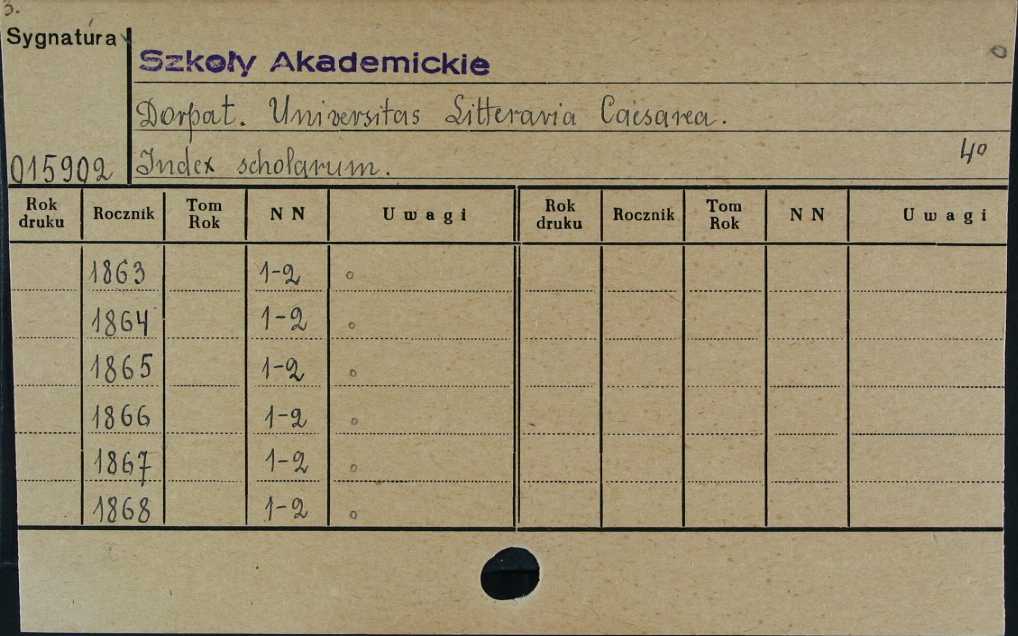 3.
Sygnatura
Szkoły Akademickie
o
Dorpat. Universitas Litteraria Caesarea.
015902 Index scholarum. 4o
Rok druku Rocznik Tom Rok NN Uwagi Rok druku Rocznik Tom Rok NN Uwagi
1863 1-2 o
1864 1-2 o
1865 1-2 o
1866 1-2 o
1867 1-2 o
1868 1-2 o